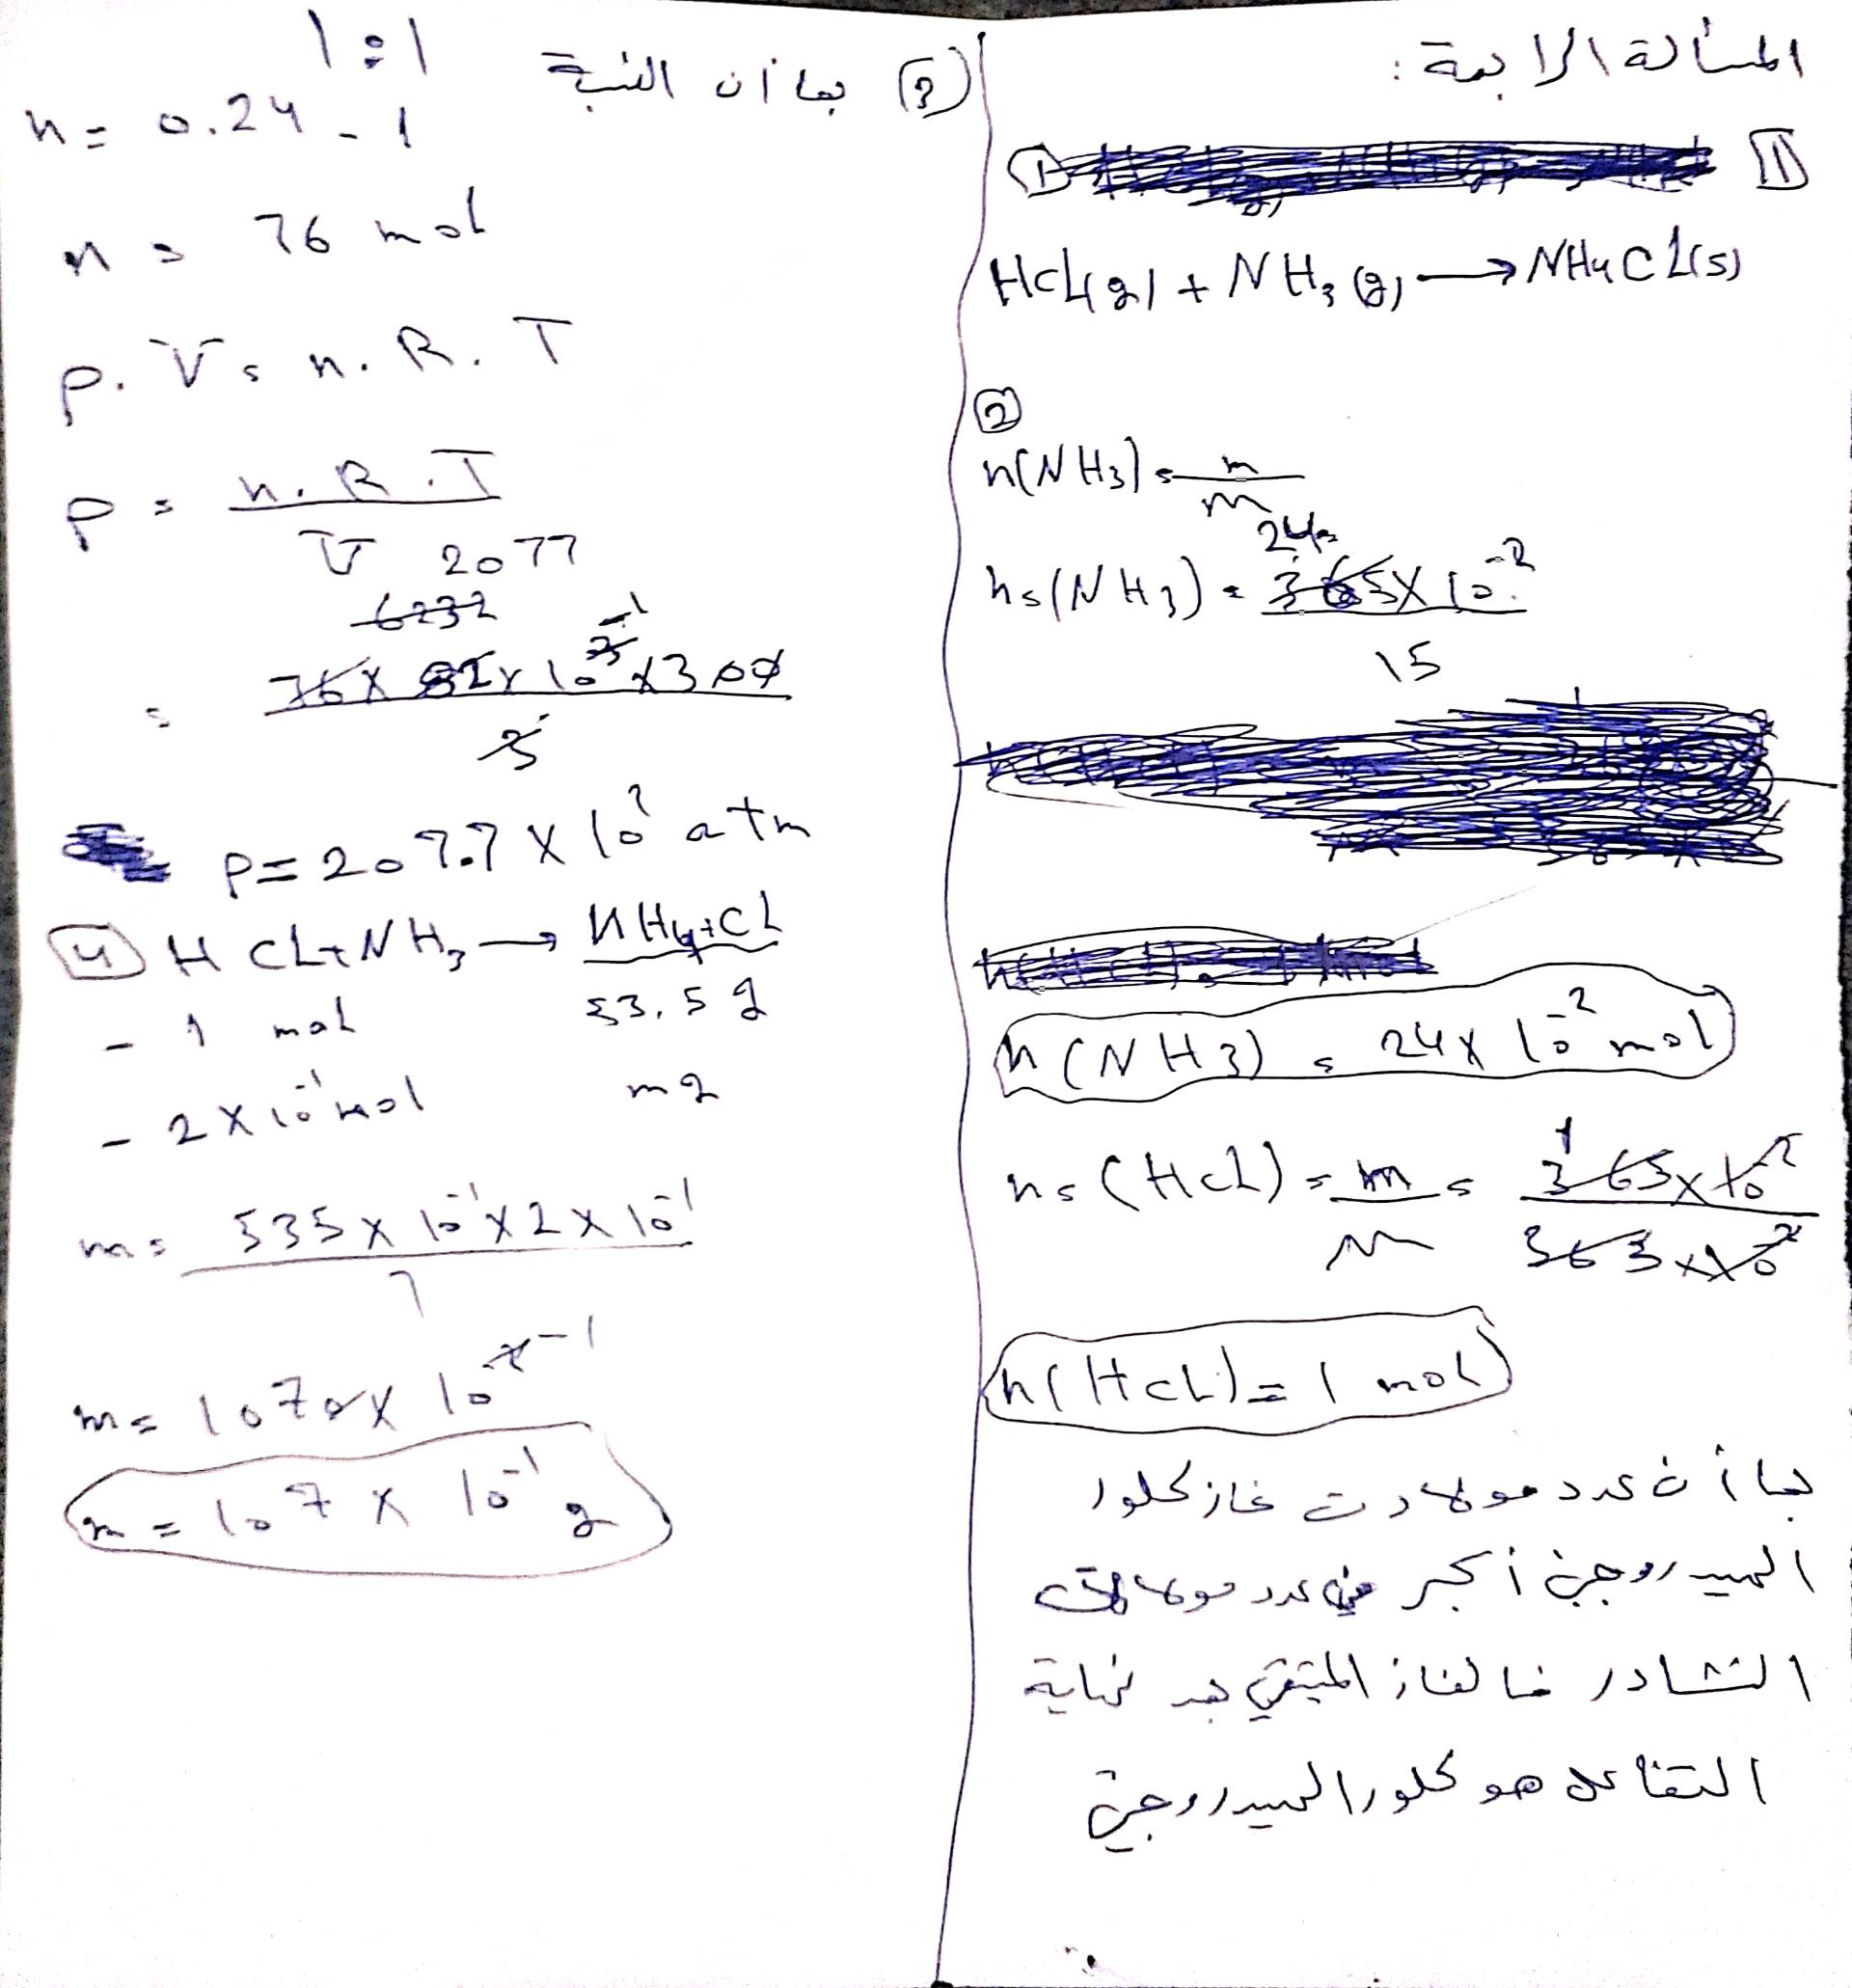 المسألة الرابعة :
1
HCl(g) + NH3(g) → NH4Cl(s)
2
n(NH3) = m
m
24
n=(NH3) = 365 × 10^-2
15
n(NH3) = 24 × 10^-2 mol
n=(HCl) = m = 365 × 10^-2
M
n(HCl) = 1 mol
بما أن عدد مولات غاز كلور
الهيدروجين أكبر من عدد مولات
النشادر فالغاز المتبقي بعد نهاية
التفاعل هو كلور الهيدروجين
3 بما أن النسبة 1:1
n = 0.24 - 1
n = 76 mol
P. V = n. R. T
P = n. R. T
V
2077
6232
= 76 × 82 × 10 × 300
3
P = 207.7 × 10 atm
4 HCl + NH3 → NH4+Cl
- 1 mol 53,5 g
- 2 × 10^-1 mol m g
m = 535 × 10^-1 × 2 × 10^-1
1
m = 1070 × 10^-1
m = 107 × 10^-1 g